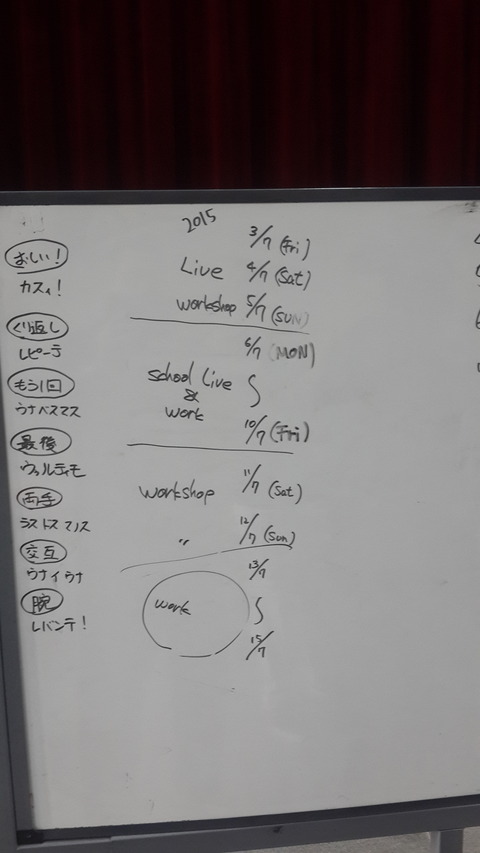 おしい!
カスィ!
くり返し
レピーテ
もう1回
ウナベスマス
最後
ウゥルティモ
両手
ラストスマノス
交互
ウナイウナ
腕
レバンテ!
2015
3/7 (Fri)
Live 4/7 (Sat)
workshop 5/7 (SUN)
6/7 (MON)
school Live
&
work
10/7 (Fri)
workshop 11/7 (Sat)
〃 12/7 (Sun)
13/7
work
15/7